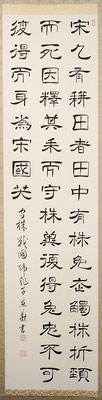 宋人有耕田者田中有株兔走觸株折頸
而死因釋其耒而守株冀復得兔兔不可
復得而身為宋國笑
守株 戰國 韓非子 書